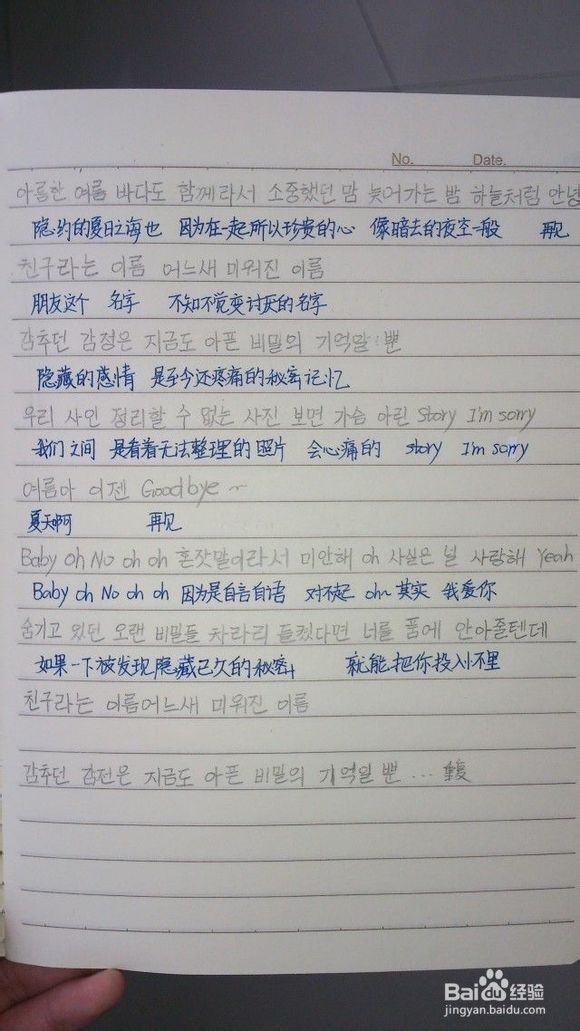 No. Date.
아릇한 여름 바다도 함께라서 소중했던 맘 늦어가는 밤 하늘처럼 안녕
隐约的夏日之海也 因为在一起所以珍贵的心 像暗去的夜空一般 再见
친구라는 이름 어느새 미워진 이름
朋友这个 名字 不知不觉变讨厌的名字
감추던 감정은 지금도 아픈 비밀의 기억일 뿐
隐藏的感情 是至今还疼痛的秘密记忆
우리 사인 정리할 수 없는 사진 보면 가슴 아린 Story I'm sorry
我们之间 是看着无法整理的照片 会心痛的 story I'm sorry
여름아 이젠 Goodbye ~
夏天啊 再见
Baby oh No oh oh 혼잣말이라서 미안해 oh 사실은 널 사랑해 Yeah
Baby oh No oh oh 因为是自言自语 对不起 oh~ 其实 我爱你
숨기고 있던 오랜 비밀들 차라리 들켰다면 너를 품에 안아줄텐데
如果一下被发现隐藏已久的秘密 就能把你投入怀里
친구라는 이름 어느새 미워진 이름
감추던 감전은 지금도 아픈 비밀의 기억일 뿐 ... 重复
Bai du 经验
jingyan.baidu.com